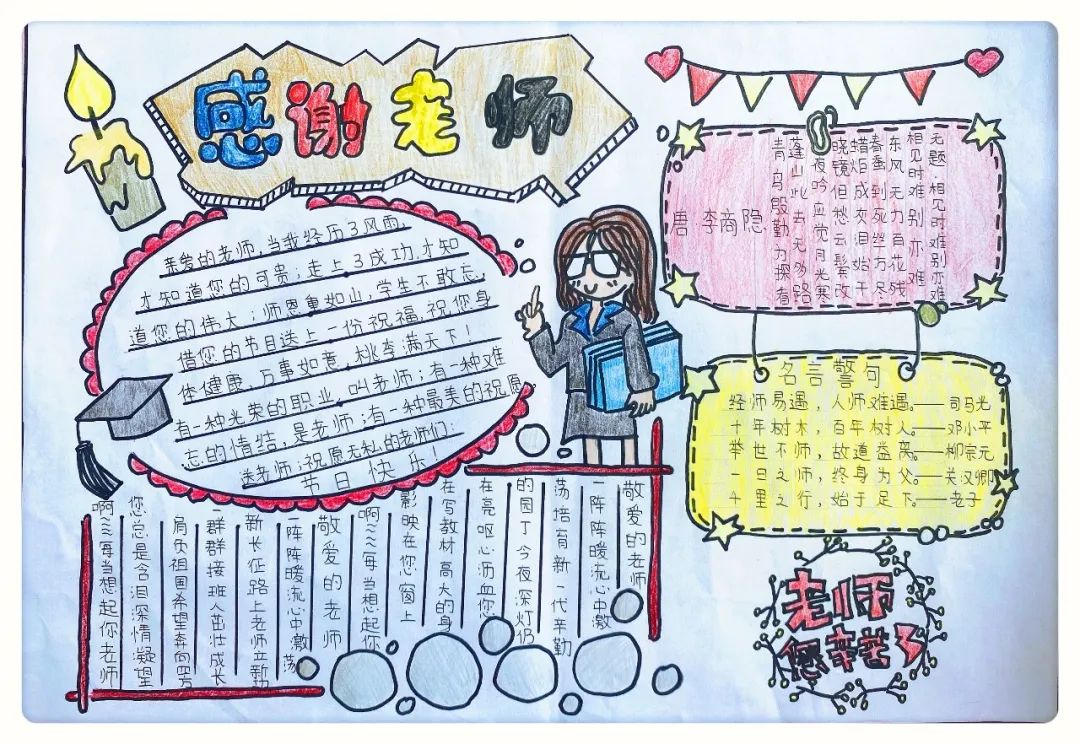 感谢老师
亲爱的老师,当我经历了风雨,
才知道您的可贵;走上了成功,才知
道您的伟大;师恩重如山,学生不敢忘,
借您的节目送上一份祝福,祝您身
体健康,万事如意,桃李满天下!
有一种光荣的职业,叫老师;有一种难
忘的情结,是老师;有一种最美的祝愿,
送老师;祝愿无私的老师们:
节日快乐!
无题·相见时难别亦难
相见时难别亦难
东风无力百花残
春蚕到死丝方尽
蜡炬成灰泪始干
晓镜但愁云鬓改
夜吟应觉月光寒
蓬山此去无多路
青鸟殷勤为探看
唐 李商隐
名言警句
经师易遇,人师难遇。——司马光
十年树木,百年树人。——邓小平
举世不师,故道益离。——柳宗元
一日之师,终身为父。——关汉卿
千里之行,始于足下。——老子
敬爱的老师
一阵阵暖流心中激
荡培育新一代辛勤
的园丁今夜深灯仍
在亮呕心沥血您
在写教材高大的身
影映在您窗上
啊……每当想起你
敬爱的老师
一阵阵暖流心中激荡
新长征路上老师立新
一群群接班人茁壮成长
肩负祖国希望奔向四方
您总是含泪深情凝望
啊……每当想起你老师
老师
您辛苦了